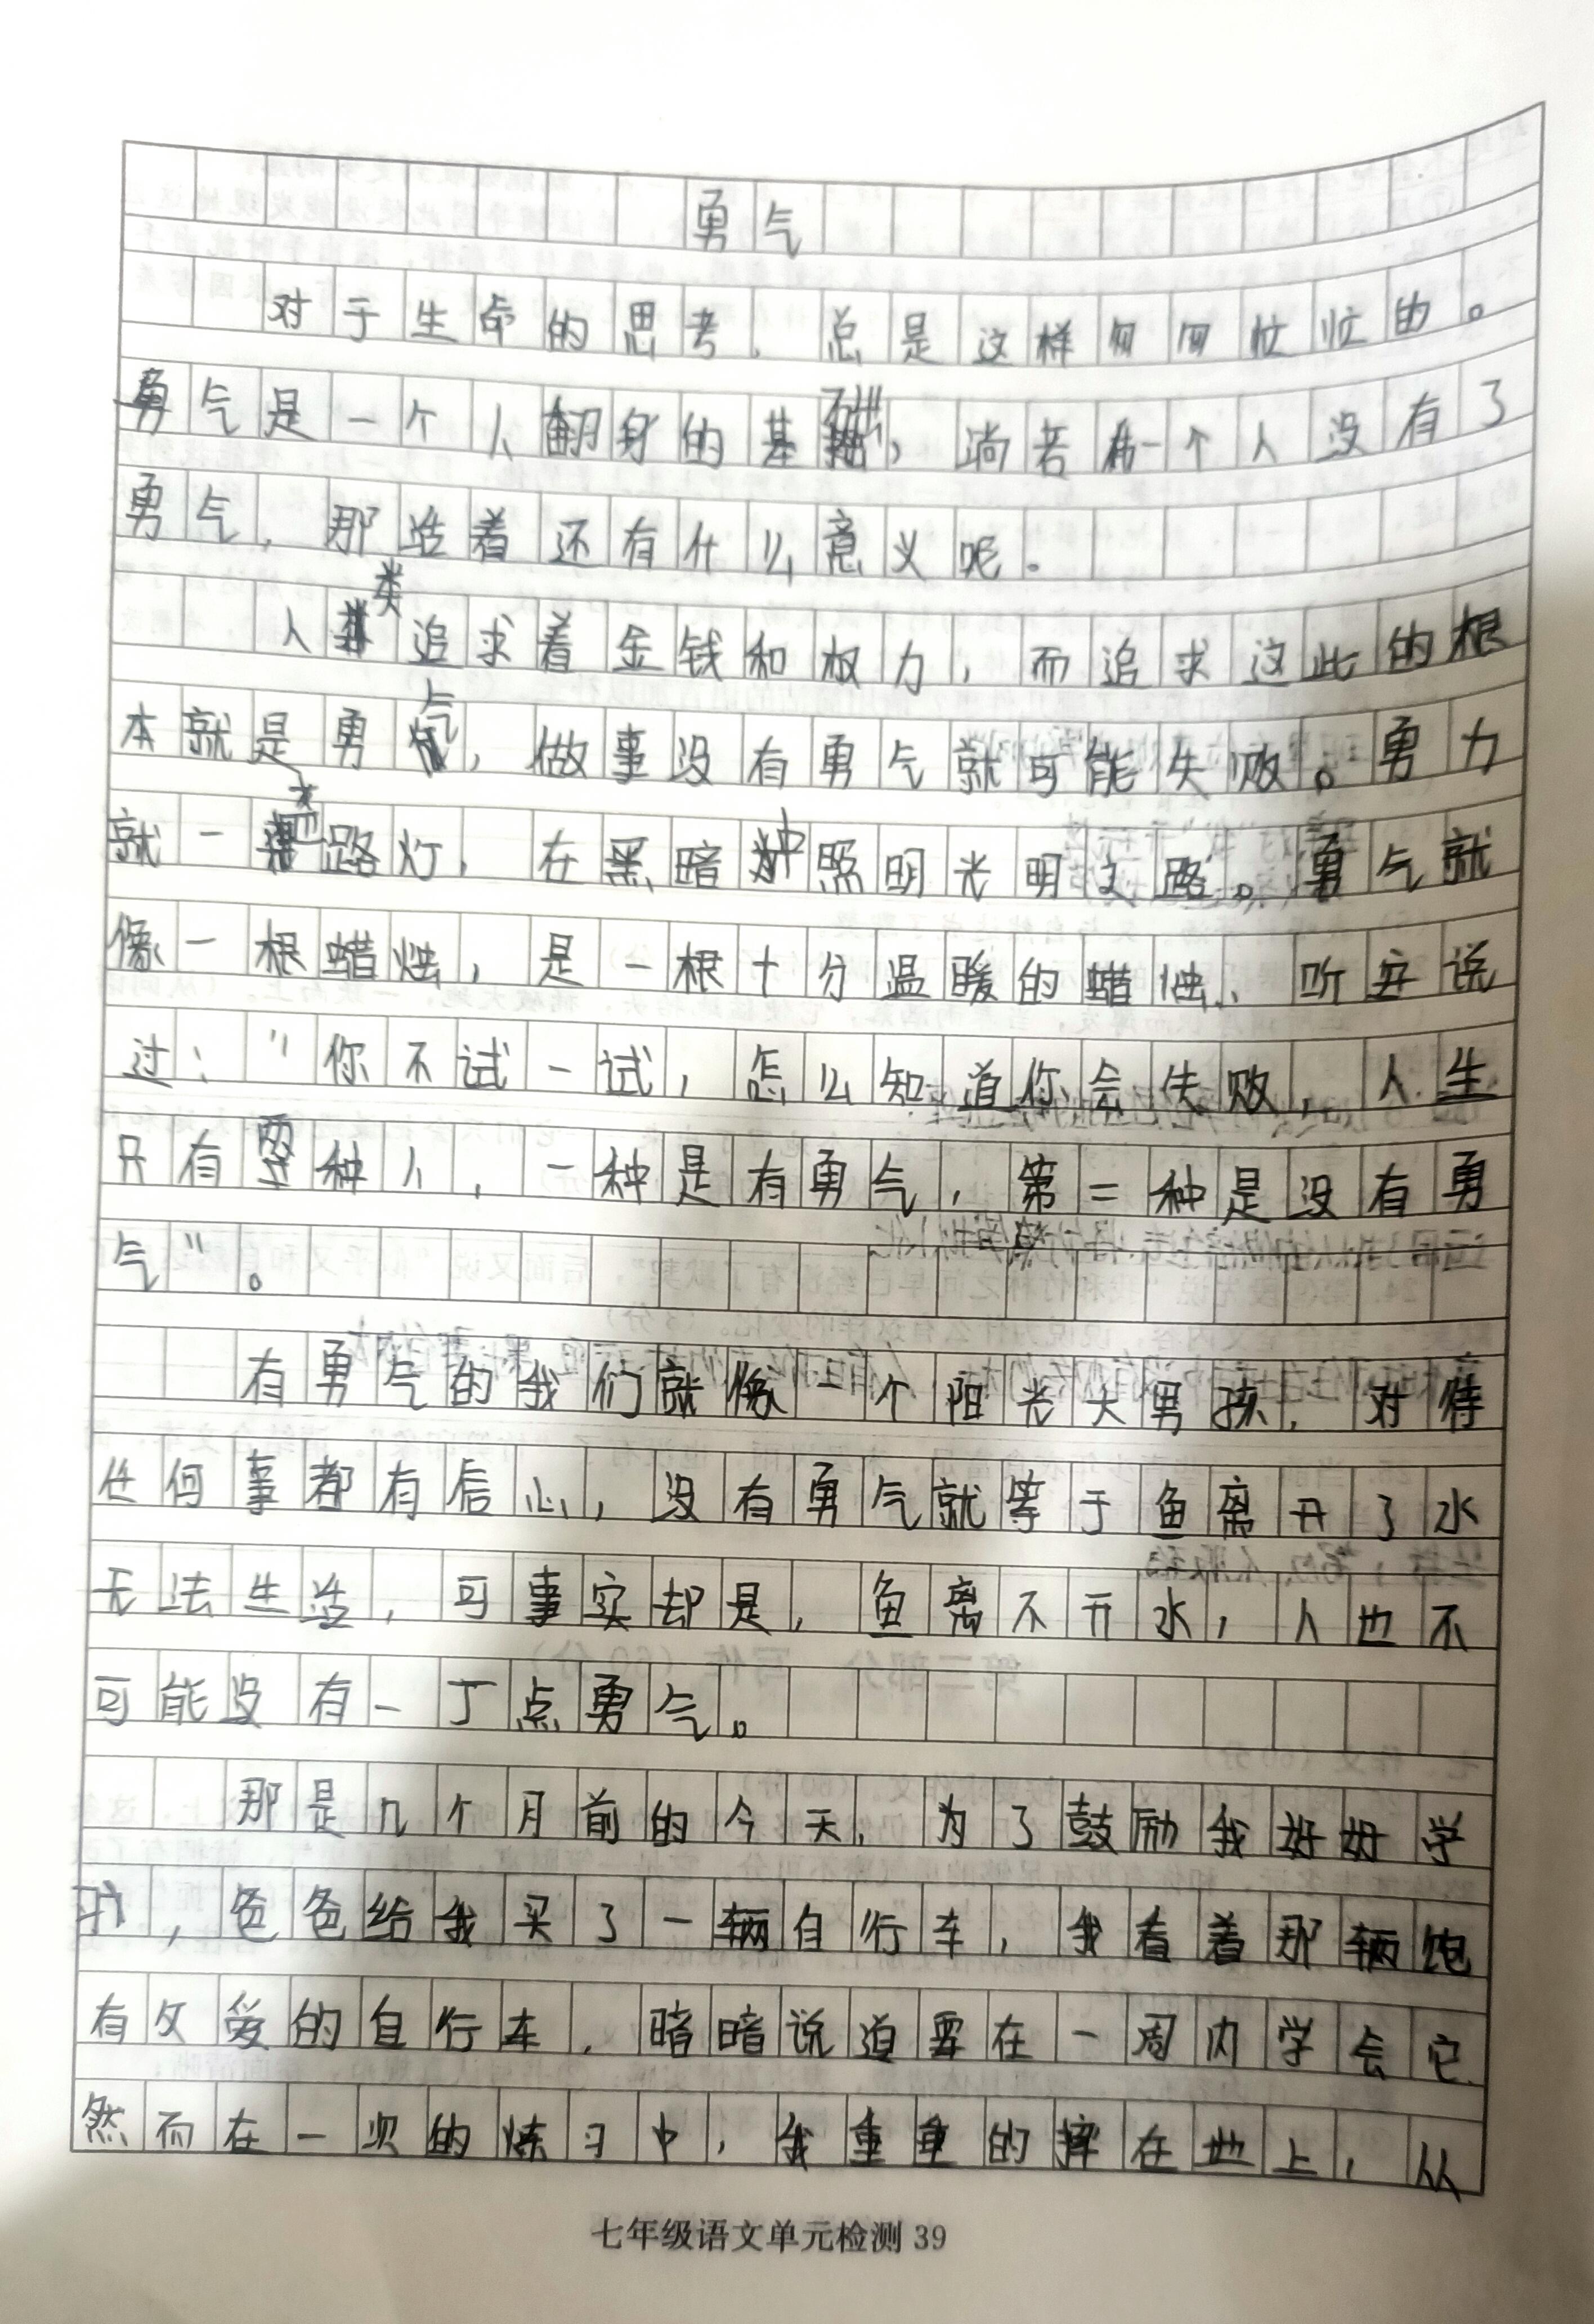 勇气
对于生命的思考，总是这样匆匆忙忙的。
勇气是一个人翻身的基础，淌若一个人没有了
勇气，那活着还有什么意义呢。
人类追求着金钱和权力，而追求这此的根
本就是勇气，做事没有勇气就可能失败。勇力
就一把路灯，在黑暗中照明光明之路。勇气就
像一根蜡烛，是一根十分温暖的蜡烛、听
说
过："你不试一试，怎么知道你会失败，人生
只有两种人，一种是有勇气，第二种是没有勇
气"。
有勇气的我们就像一个阳光大男孩，对待
任何事都有信心，没有勇气就等于鱼离开了水
无法生活，可事实却是，鱼离不开水，人也不
可能没有一丁点勇气。
那是几个月前的今天，为了鼓励我好好学
习，爸爸给我买了一辆自行车，我看着那辆饱
有父爱的自行车，暗暗说道要在一周内学会它.
然而在一次的炼习中，我重重的摔在地上，从
七年级语文单元检测 39